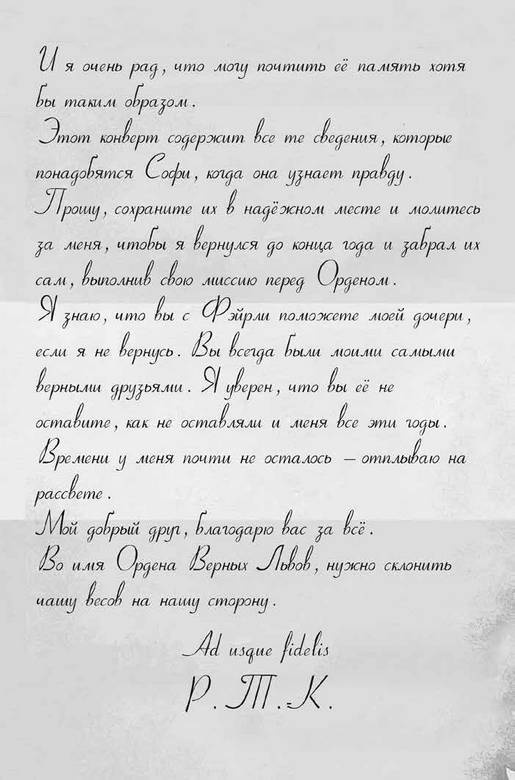 И я очень рад, что могу почтить её память хотя
бы таким образом.
Этот конверт содержит все те сведения, которые
понадобятся Софи, когда она узнает правду.
Прошу, сохраните их в надёжном месте и молитесь
за меня, чтобы я вернулся до конца года и забрал их
сам, выполнив свою миссию перед Орденом.
Я знаю, что вы с Фэйрли поможете моей дочери,
если я не вернусь. Вы всегда были моими самыми
верными друзьями. Я уверен, что вы её не
оставите, как не оставляли и меня все эти годы.
Времени у меня почти не осталось – отплываю на
рассвете.
Мой добрый друг, благодарю вас за всё.
Во имя Ордена Верных Львов, нужно склонить
чашу весов на нашу сторону.
Ad usque fidelis
Р. Т.-К.